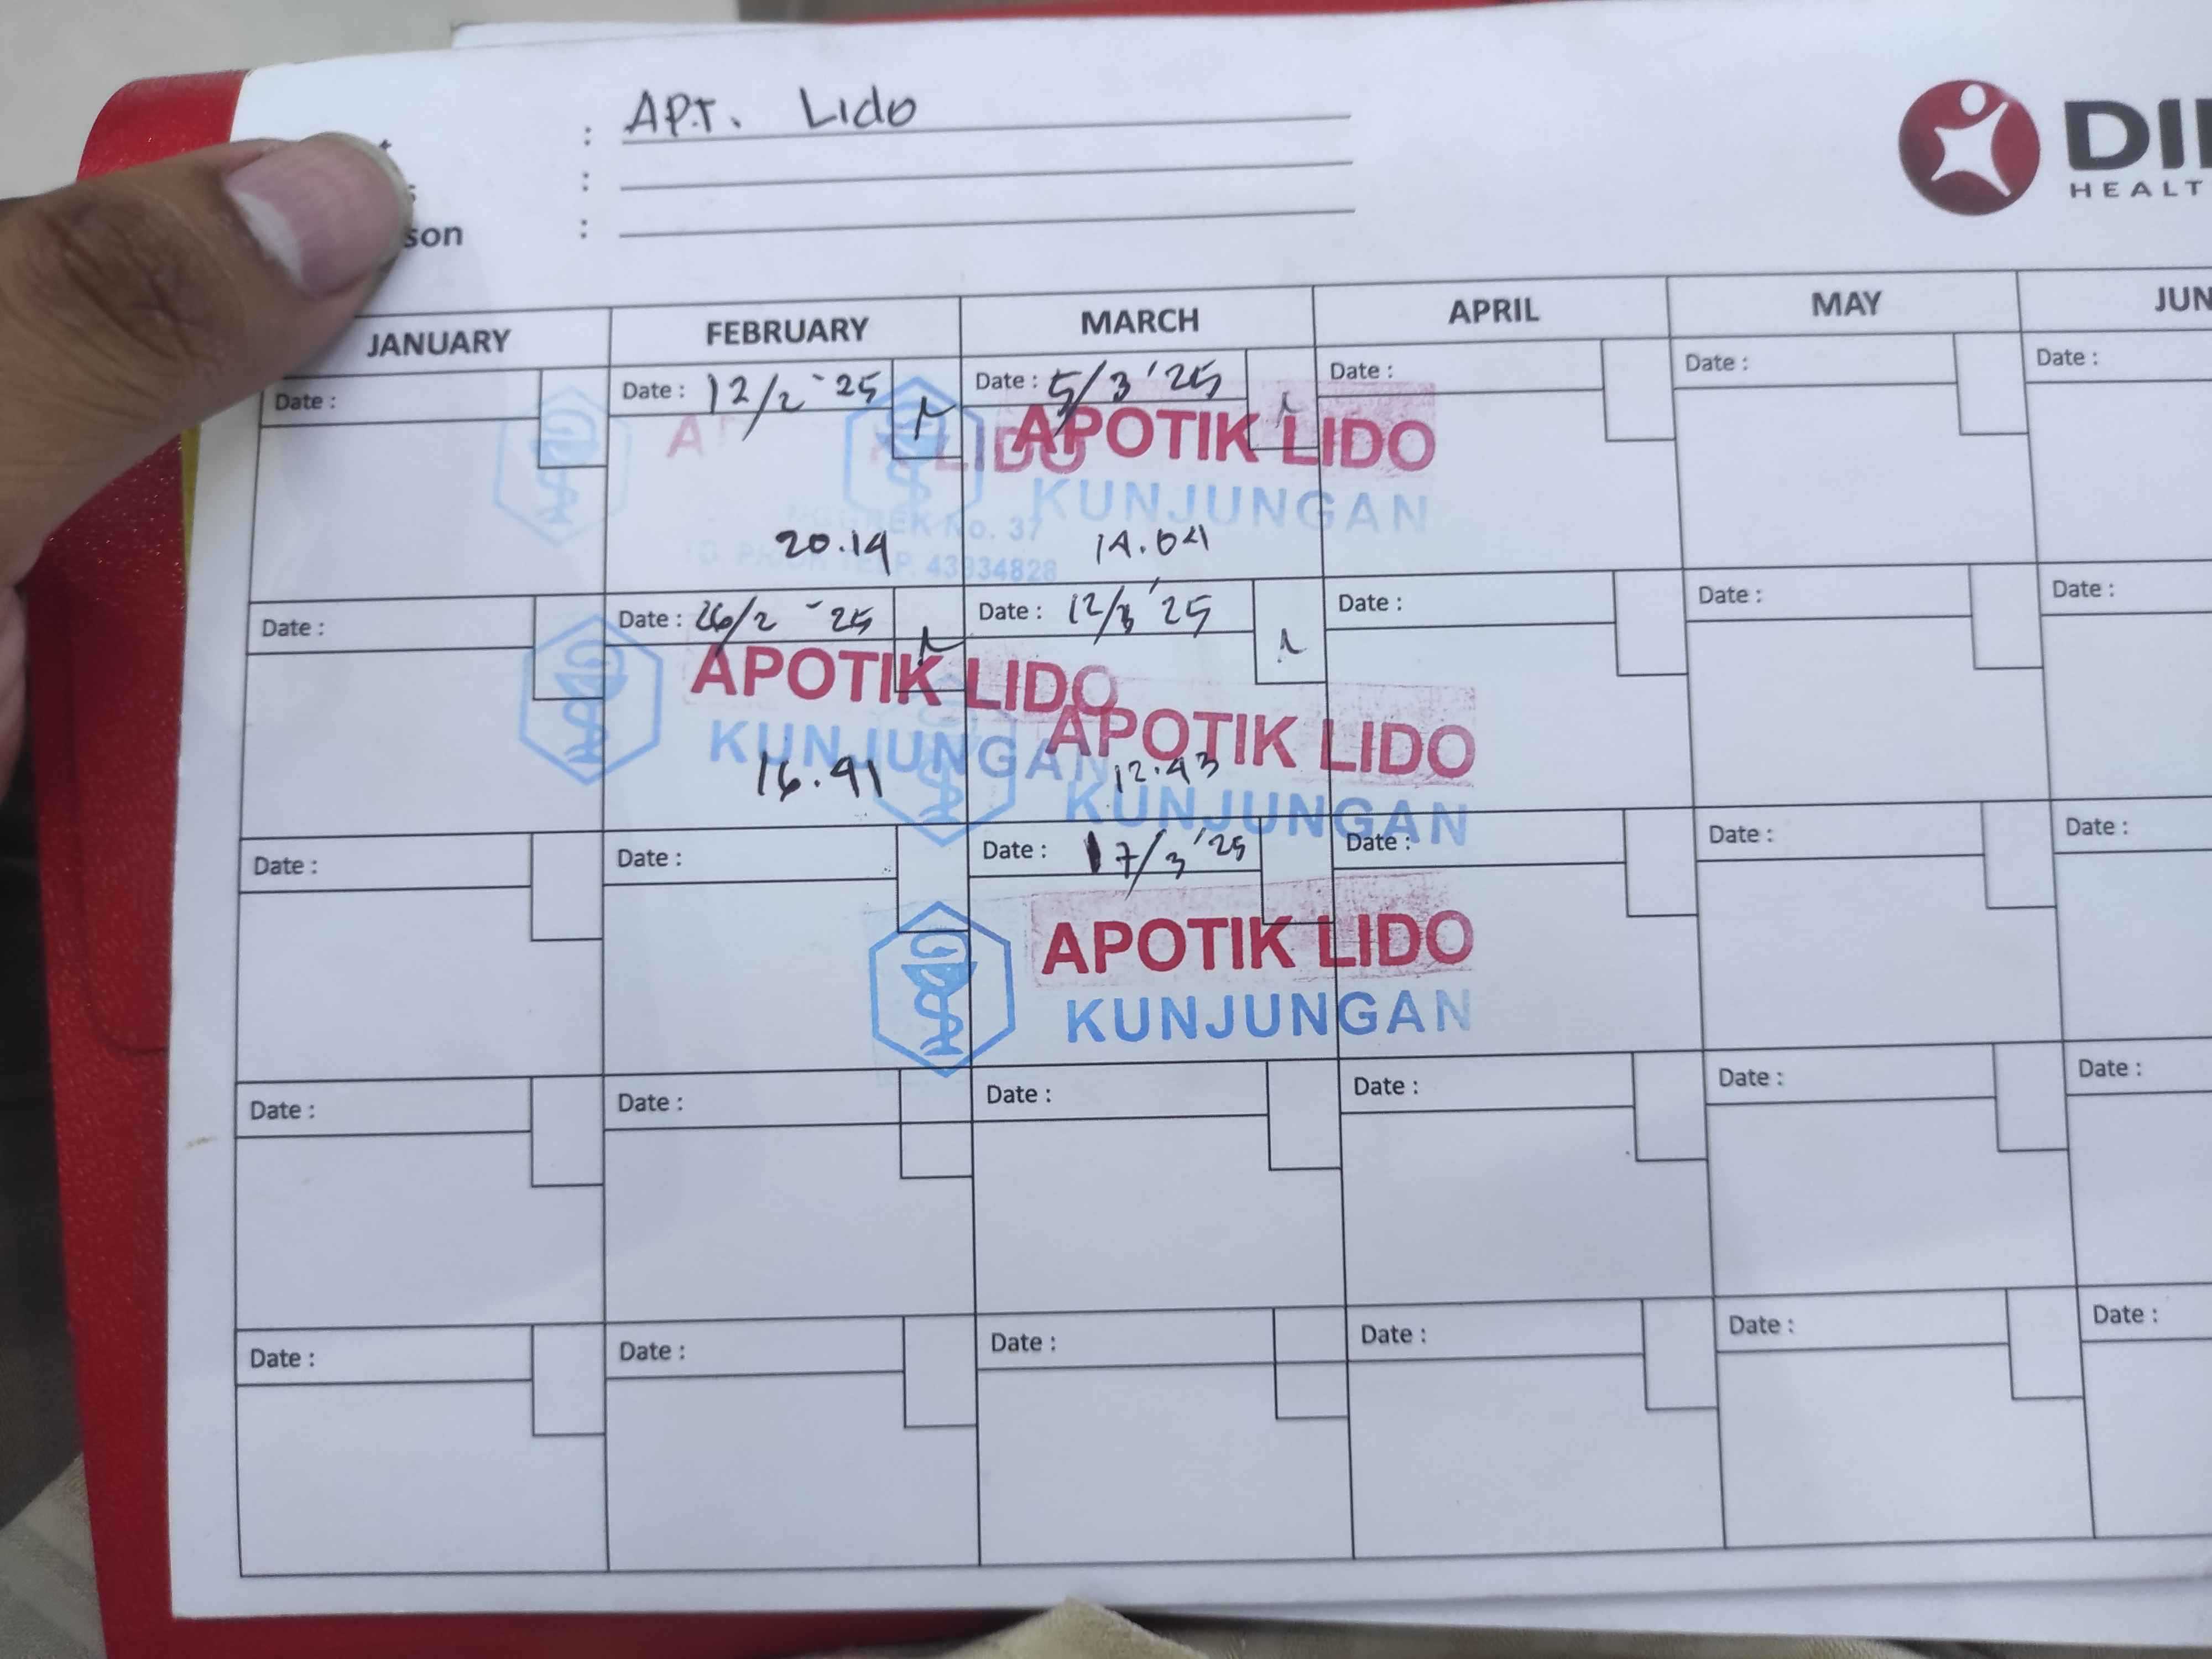 : APT. Lido
:
son :
DI
HEALT
JANUARY FEBRUARY MARCH APRIL MAY JUN
Date : Date : 12/2 - 25 Date : 5/3 '25 Date : Date : Date :
LIDO APOTIK LIDO
KUNJUNGAN
No. 37
TELP. 43934828
20.19 14.04
Date : Date : 26/2 - 25 Date : 12/3 '25 Date : Date : Date :
APOTIK LIDO APOTIK LIDO
KUNJUNGAN KUNJUNGAN
16.41 12.43
Date : Date : Date : 17/3 '25 Date : Date : Date :
APOTIK LIDO
KUNJUNGAN
Date : Date : Date : Date : Date : Date :
Date : Date : Date : Date : Date : Date :